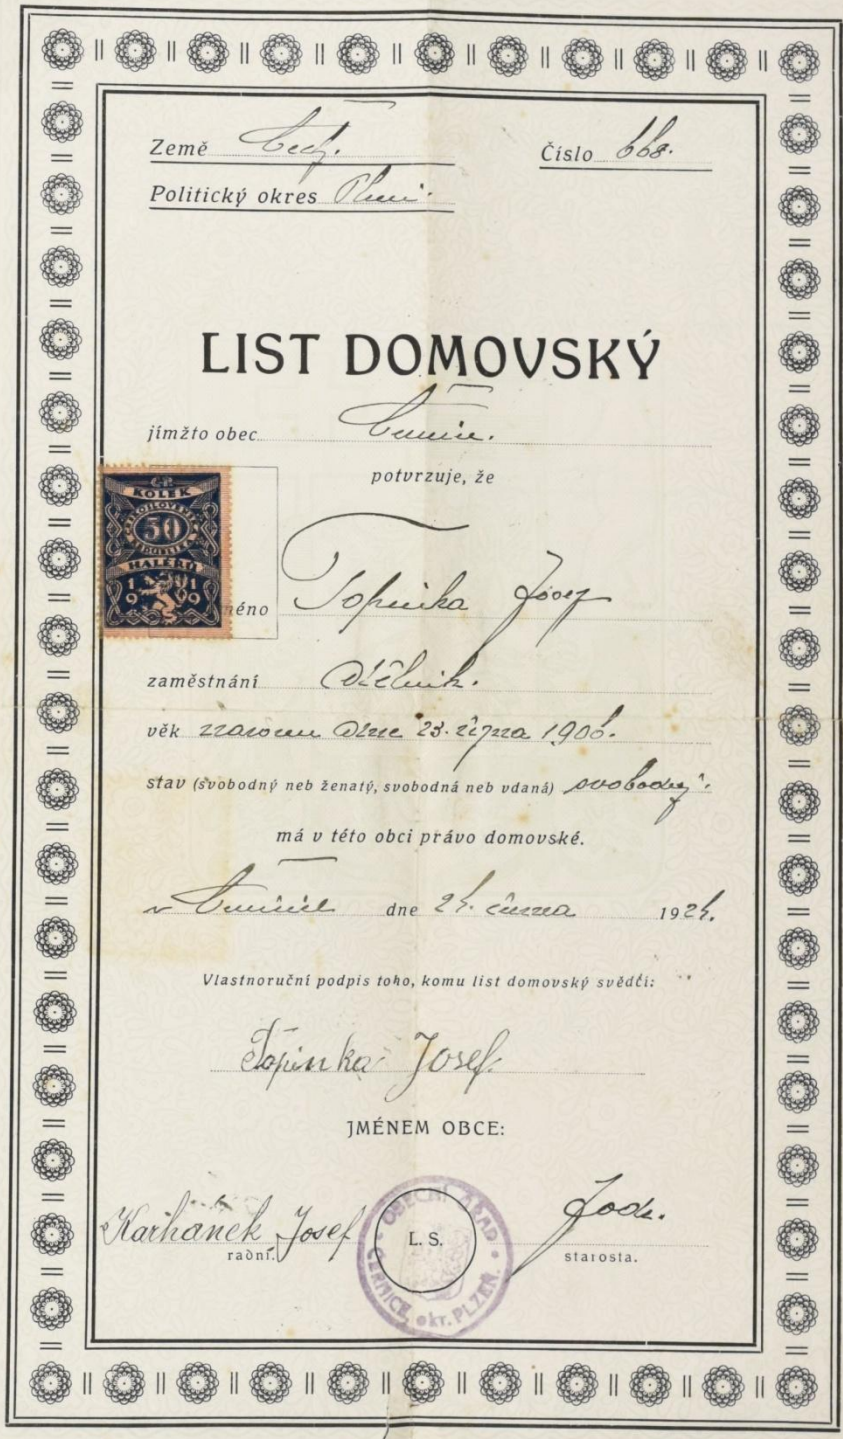 Země Čechy. Číslo 668.
Politický okres Plzeň.
LIST DOMOVSKÝ
jímžto obec Černice.
potvrzuje, že
KOLEK
50
HALÉŘŮ
1919
méno Topinka Josef
zaměstnání dělník.
věk narozen dne 23. října 1906.
stav (svobodný neb ženatý, svobodná neb vdaná) svobodný.
má v této obci právo domovské.
v Černicích dne 24. června 1924.
Vlastnoruční podpis toho, komu list domovský svědčí:
Topinka Josef.
JMÉNEM OBCE:
Karhánek Josef
radní.
OBECNÍ ÚŘAD
ČERNICE, okr. PLZEŇ.
L. S.
starosta.